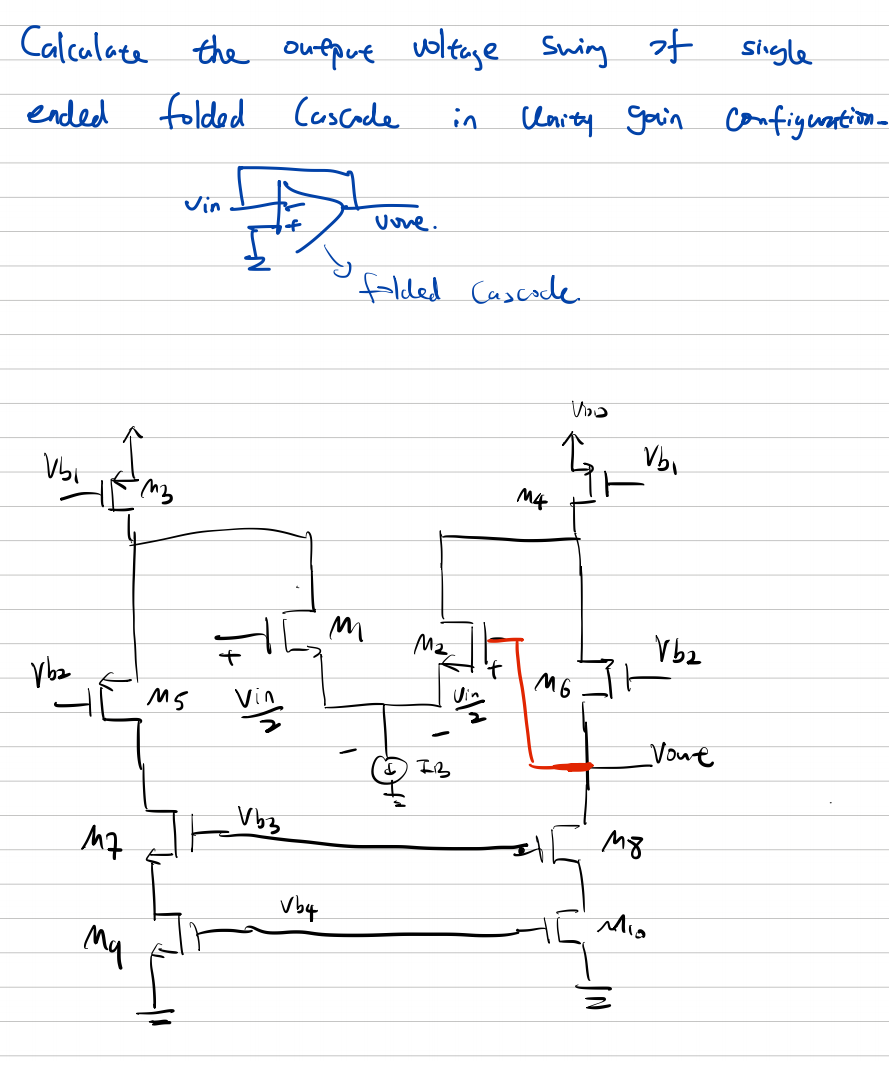 Calculate the output voltage swing of single
ended folded Cascode in Unity gain configuration-
Vin
-
+
Vout.
folded Cascode
VDD
Vb1
M3
Vb1
M4
M1
+
Vin/2
-
M2
+
Vin/2
-
Vb2
M5
M6
Vb2
IB
Vout
M7
Vb3
M8
M9
Vb4
M10